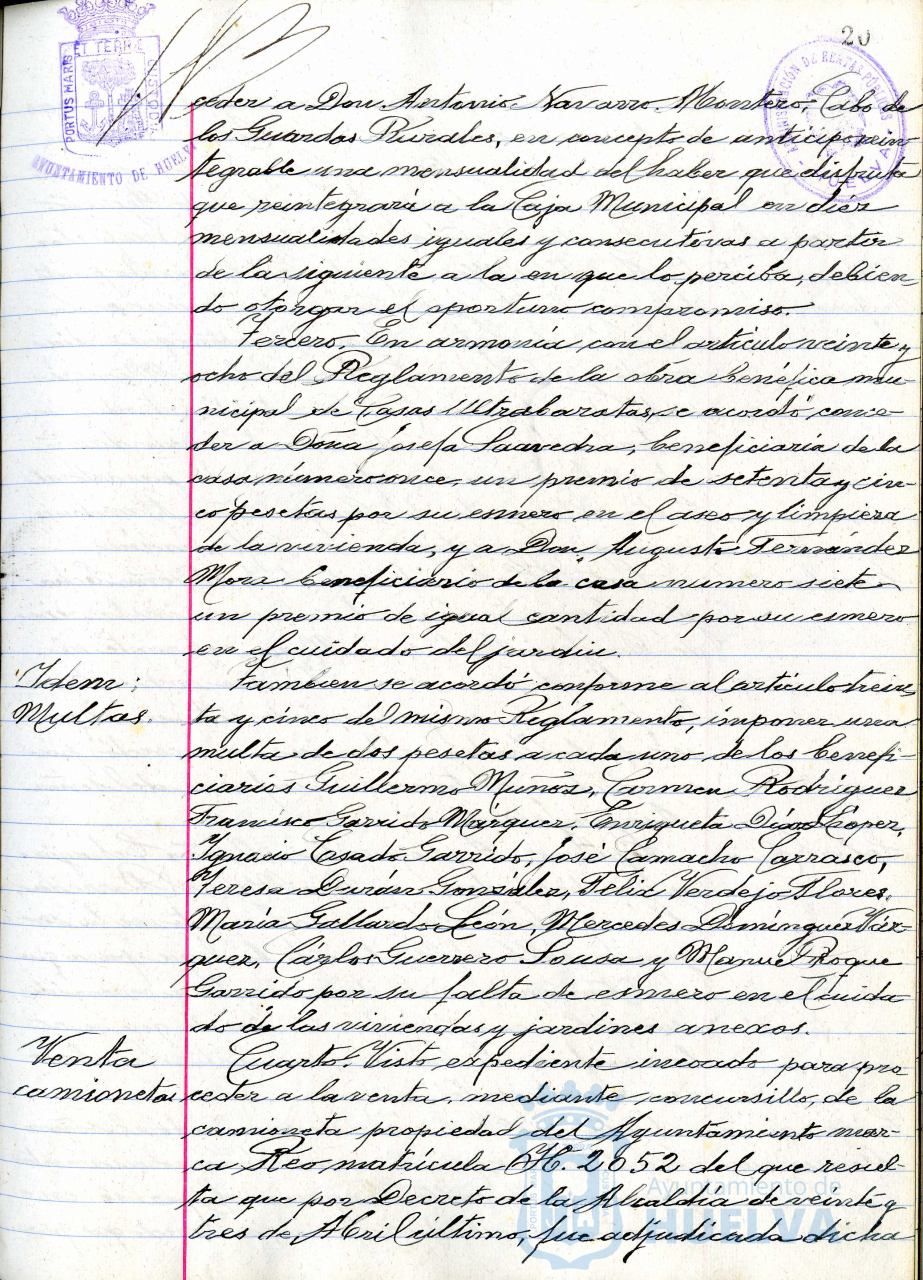 20
PORTUS MARIS ET TERRÆ CUSTODIA
AYUNTAMIENTO DE HUELVA
ADMINISTRACIÓN DE RENTAS PÚBLICAS
HUELVA
ceder a Don Antonio Navarro Montero, Cabo de
los Guardas Rurales, en concepto de anticipo rein
tegrable una mensualidad del haber que disfruta
que reintegrará a la Caja Municipal en diez
mensualidades iguales y consecutivas a partir
de la siguiente a la en que lo perciba, debien-
do otorgar el oportuno compromiso.
Tercero. En armonía con el artículo veinte y
ocho del Reglamento de la obra benéfica mu-
nicipal de Casas Ultrabaratas, se acordó, conce-
der a Doña Josefa Saavedra, beneficiaria de la
casa número once, un premio de setenta y cin-
co pesetas por su esmero en el aseo y limpieza
de la vivienda, y a Don Augusto Fernández
Mora beneficiario de la casa numero siete
un premio de igual cantidad por su esmero
en el cuidado del jardin.
Idem:
Multas.
Tambien se acordó conforme al artículo trein-
ta y cinco del mismo Reglamento, imponer una
multa de dos pesetas a cada uno de los benefi-
ciarios Guillermo Muñoz, Carmen Rodríguez
Francisco Garrido Márquez, Enriqueta Díaz López,
Ignacio Casado Garrido, José Camacho Carrasco,
Teresa Durán González, Félix Verdejo Flores,
María Gallardo León, Mercedes Domínguez Váz-
quez, Cárlos Guerrero Sousa y Manuel Roque
Garrido por su falta de esmero en el cuida-
do de las viviendas y jardines anexos.
Venta
camioneta
Cuarto. Visto expediente incoado para pro
ceder a la venta, mediante concursillo, de la
camioneta propiedad del Ayuntamiento mar-
ca Reo matrícula H. 2652 del que resul-
ta que por Decreto de la Alcaldía de veinte y
tres de Abril último, fue adjudicada dicha
Ayuntamiento de
HUELVA